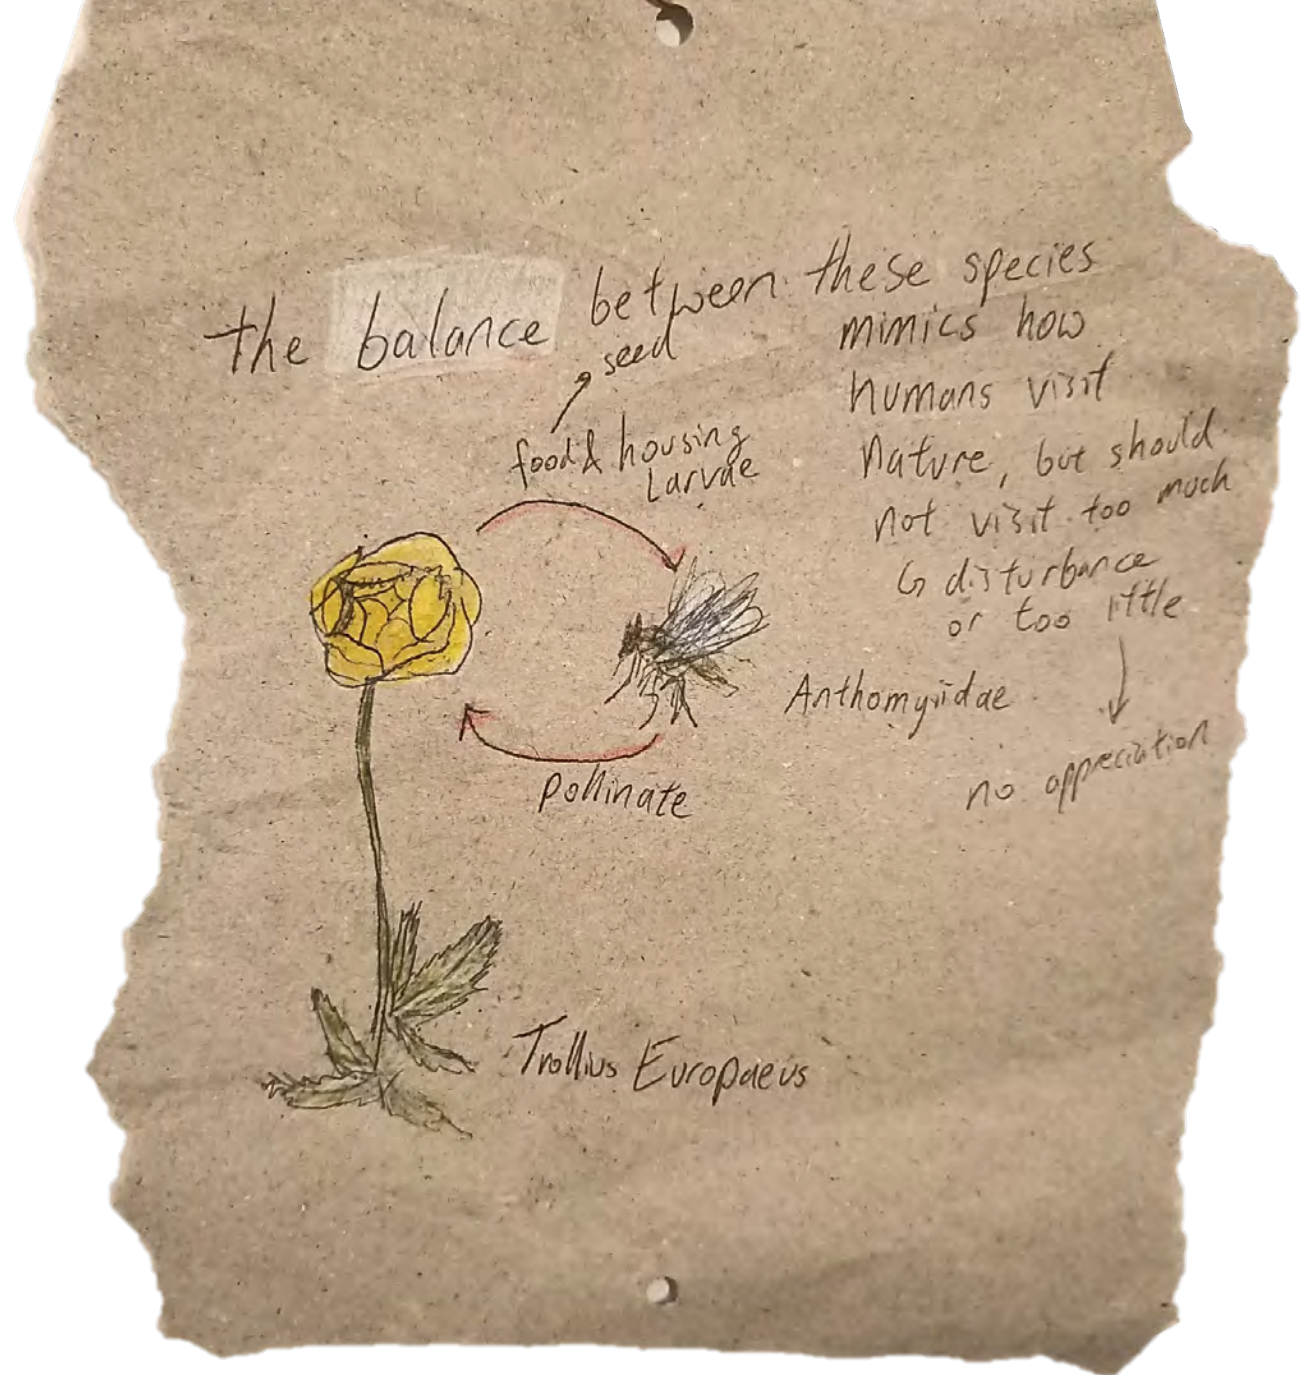 the balance between these species
mimics how
humans visit
nature, but should
not visit too much
↳ disturbance
or too little
no appreciation
seed
food & housing
larvae
Anthomyiidae
pollinate
Trollius Europaeus